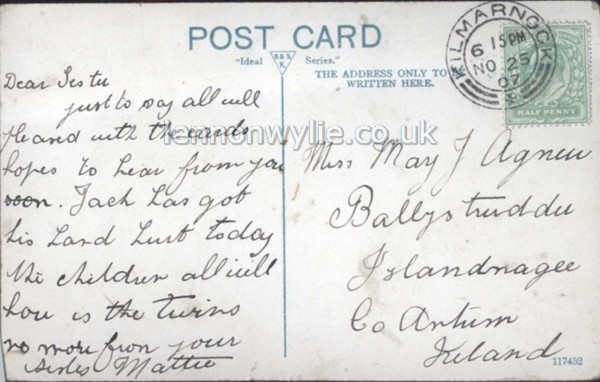 POST CARD
"Ideal B & S K. Series."
THE ADDRESS ONLY TO BE
WRITTEN HERE.
KILMARNOCK
6 15PM
NO 25
07
HALF PENNY
Dear Sister
just to say all well
pleased with the cards
hopes to hear from you
soon. Jack has got
his hand hurt today
the children all well
how is the twins
no more from your
sister Mattie
Miss May J Agnew
Ballystruddu
Islandmagee
Co Antrim
Ireland
117452
lennonwylie.co.uk